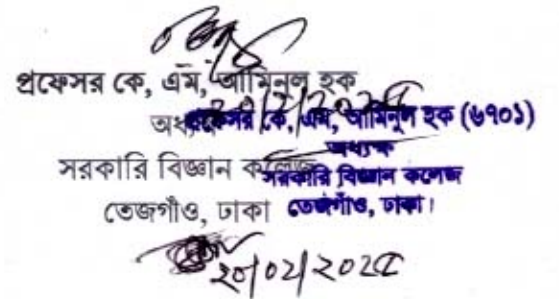 প্রফেসর কে, এম, আমিনুল হক
অধ্যক্ষ
সরকারি বিজ্ঞান কলেজ
তেজগাঁও, ঢাকা
প্রফেসর কে, এম, আমিনুল হক (৬৭০১)
অধ্যক্ষ
সরকারি বিজ্ঞান কলেজ
তেজগাঁও, ঢাকা।
২০/02/202৫